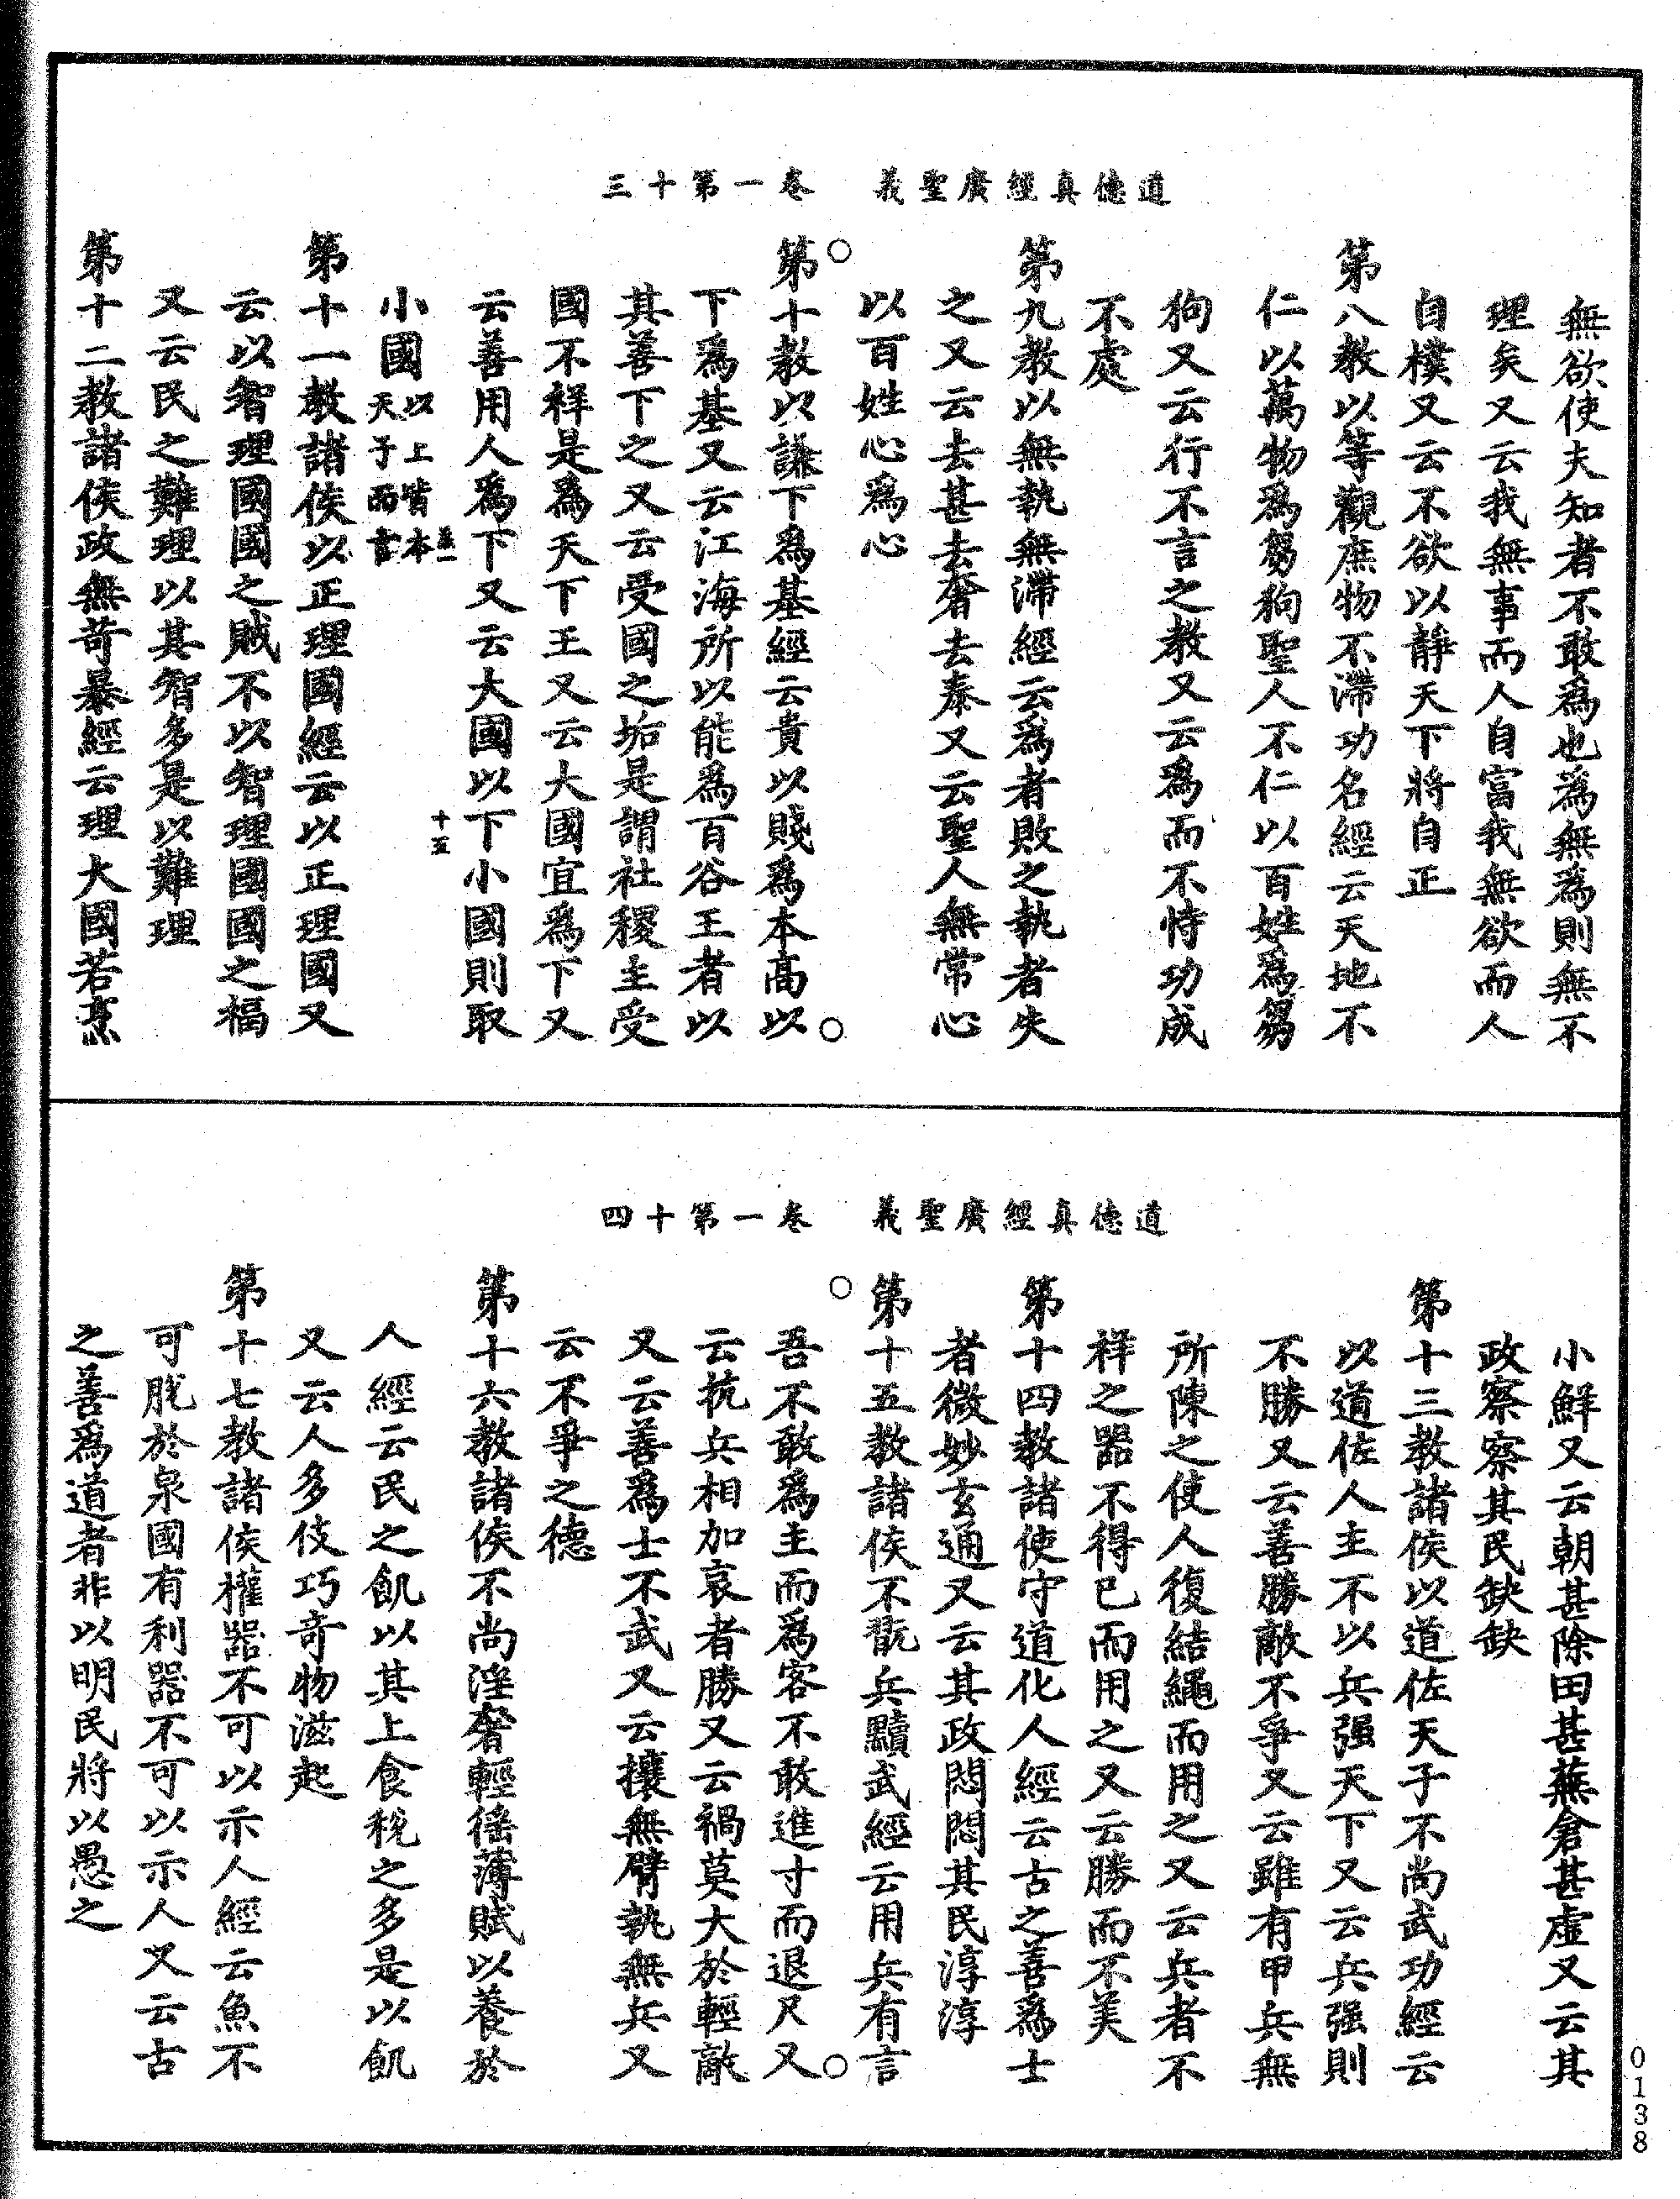 道德真經廣聖義　卷一第十三
無欲使夫知者不敢爲也爲無爲則無不
理矣又云我無事而人自富我無欲而人
自樸又云不欲以靜天下將自正
第八教以等觀庶物不滯功名經云天地不
仁以萬物爲芻狗聖人不仁以百姓爲芻
狗又云行不言之教又云爲而不恃功成
不處
第九教以無執無滯經云爲者敗之執者失
之又云去甚去奢去泰又云聖人無常心
以百姓心爲心
第十教以謙下爲基經云貴以賤爲本高以
下爲基又云江海所以能爲百谷王者以
其善下之又云受國之垢是謂社稷主受
國不祥是爲天下王又云大國宜爲下又
云善用人爲下又云大國以下小國則取
小國以上皆本天子而書
十五
第十一教諸侯以正理國經云以正理國又
云以智理國國之賊不以智理國國之福
又云民之難理以其智多是以難理
第十二教諸侯政無苛暴經云理大國若烹
道德真經廣聖義　卷一第十四
小鮮又云朝甚除田甚蕪倉甚虛又云其
政察察其民缺缺
第十三教諸侯以道佐天子不尚武功經云
以道佐人主不以兵强天下又云兵强則
不勝又云善勝敵不爭又云雖有甲兵無
所陳之使人復結繩而用之又云兵者不
祥之器不得已而用之又云勝而不美
第十四教諸使守道化人經云古之善爲士
者微妙玄通又云其政悶悶其民淳淳
第十五教諸侯不翫兵黷武經云用兵有言
吾不敢爲主而爲客不敢進寸而退尺又
云抗兵相加哀者勝又云禍莫大於輕敵
又云善爲士不武又云攘無臂執無兵又
云不爭之德
第十六教諸侯不尚淫奢輕徭薄賦以養於
人經云民之飢以其上食稅之多是以飢
又云人多伎巧奇物滋起
第十七教諸侯權器不可以示人經云魚不
可脫於泉國有利器不可以示人又云古
之善爲道者非以明民將以愚之
0138